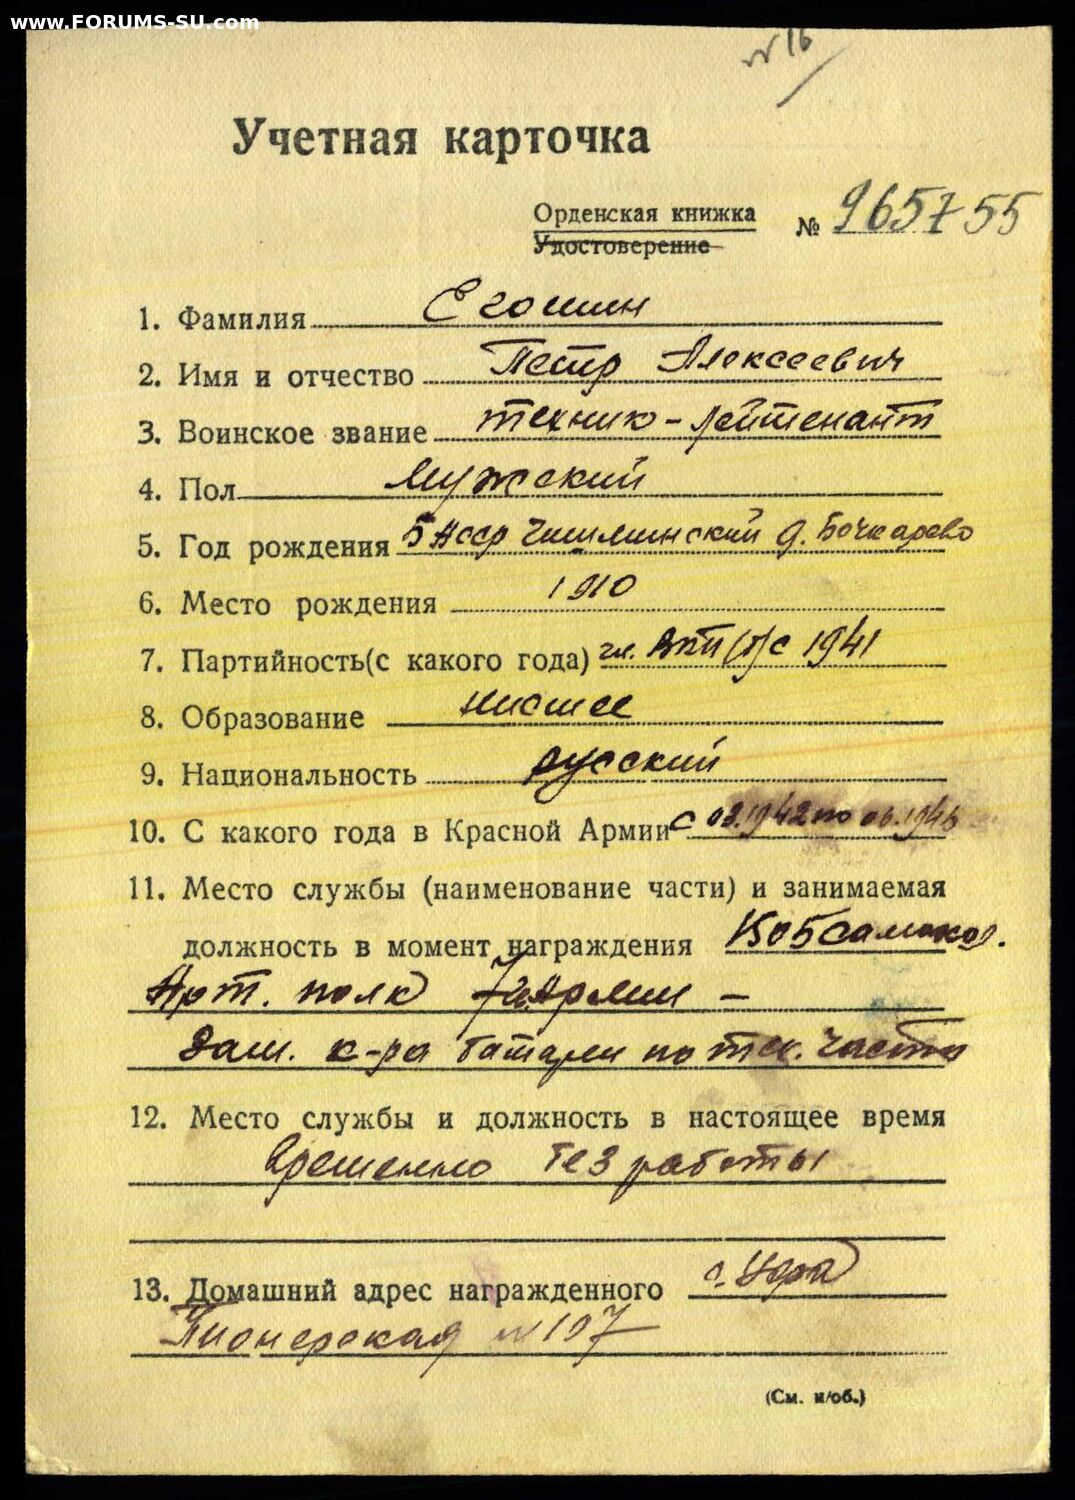 www.FORUMS-SU.com
№ 16
Учетная карточка
Орденская книжка № 965755
Удостоверение
1. Фамилия Егошин
2. Имя и отчество Петр Алексеевич
3. Воинское звание техник-лейтенант
4. Пол Мужской
5. Год рождения БАССР Чишминский д. Бочкарево
6. Место рождения 1910
7. Партийность(с какого года) чл. ВКП(б) с 1941
8. Образование низшее
9. Национальность русский
10. С какого года в Красной Армии с 03.1942 по 06.1946
11. Место службы (наименование части) и занимаемая
должность в момент награждения самоход.
Арт. полк 7 Армии –
зам. к-ра батареи по тех. части
12. Место службы и должность в настоящее время
Временно без работы
13. Домашний адрес награжденного г. Уфа
Пионерская № 107
(См. н/об.)